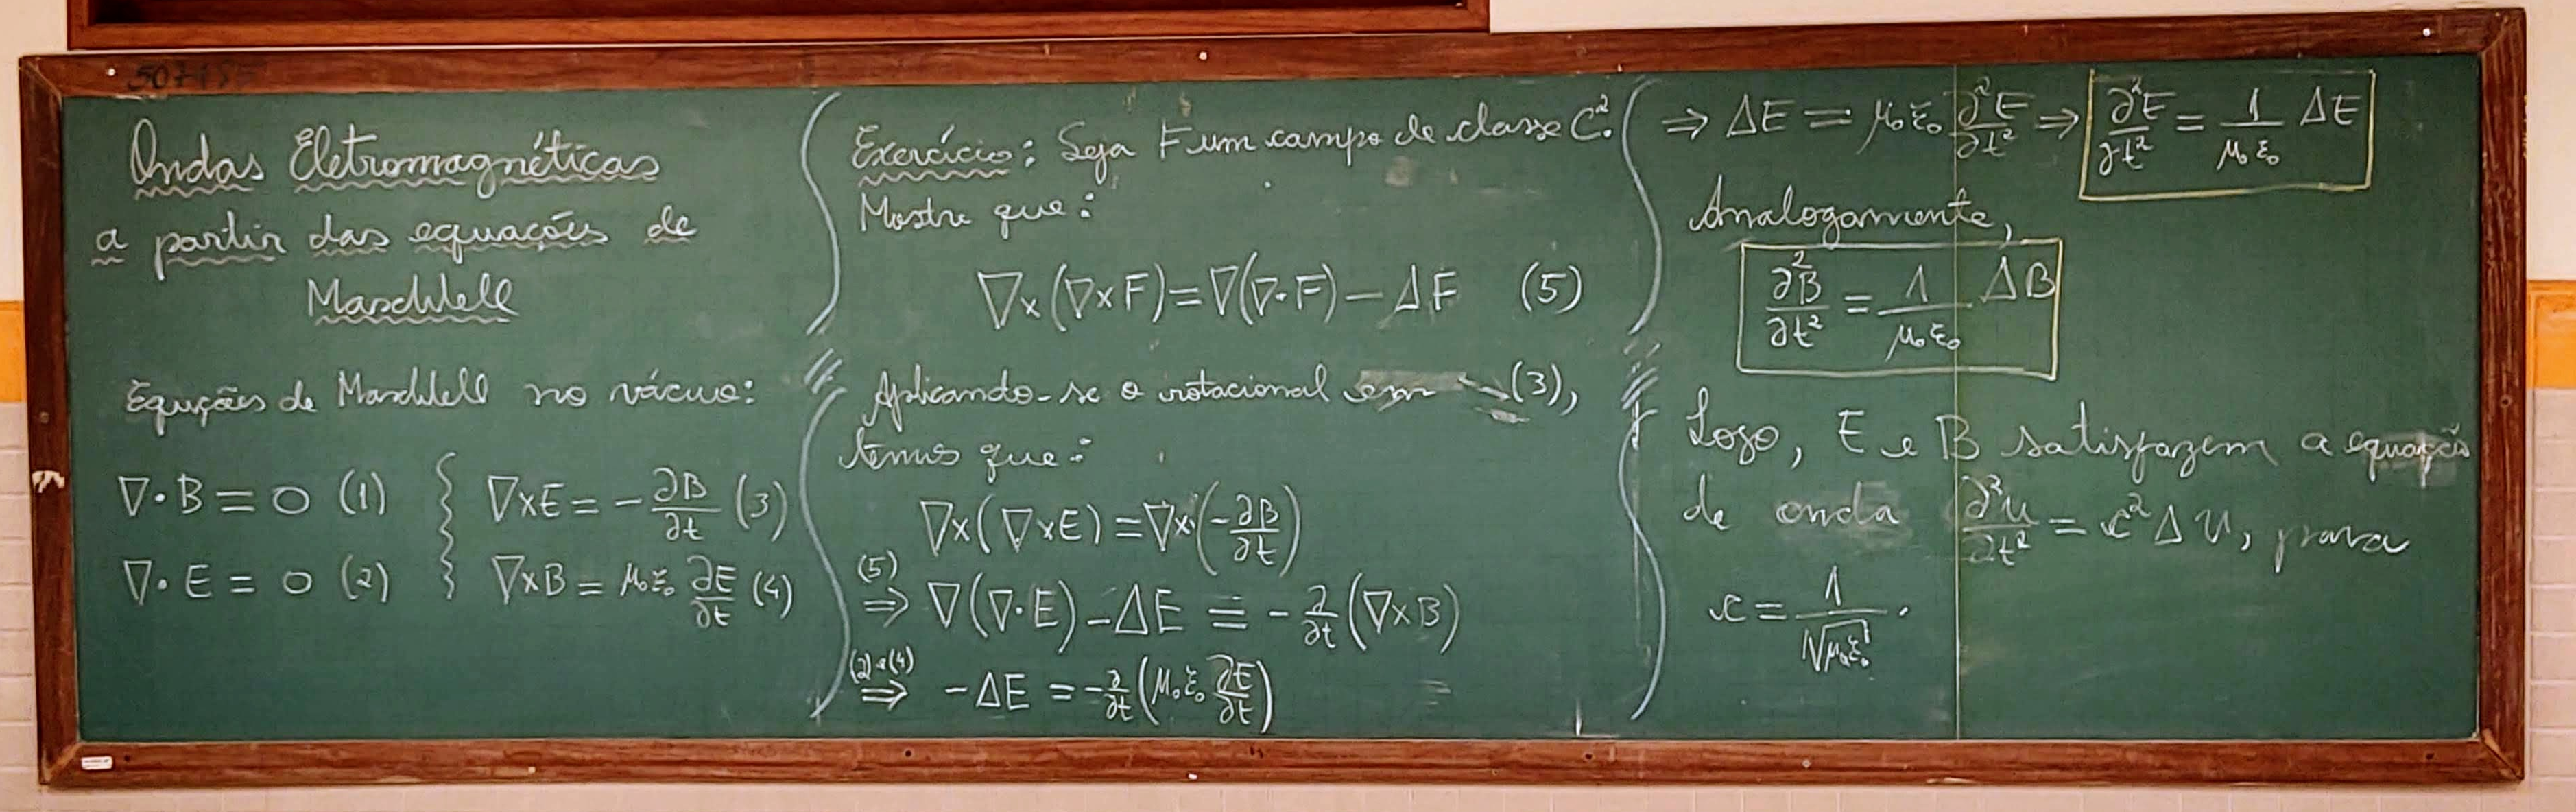 Ondas Eletromagnéticas
a partir das equações de
Maxwell
Equções de Maxwell no vácuo:
∇·B = 0 (1)
∇·E = 0 (2)
∇×E = -∂B/∂t (3)
∇×B = μ₀ε₀ ∂E/∂t (4)
Exercício: Seja F um campo de classe C².
Mostre que:
∇×(∇×F) = ∇(∇·F) - ΔF (5)
Aplicando-se o rotacional em (3),
temos que:
∇×(∇×E) = ∇×(-∂B/∂t)
(5) ⇒ ∇(∇·E) - ΔE = -∂/∂t (∇×B)
(2) e (4) ⇒ -ΔE = -∂/∂t (μ₀ε₀ ∂E/∂t)
⇒ ΔE = μ₀ε₀ ∂²E/∂t² ⇒ ∂²E/∂t² = 1/μ₀ε₀ ΔE
Analogamente,
∂²B/∂t² = 1/μ₀ε₀ ΔB
Logo, E e B satisfazem a equação
de onda ∂²u/∂t² = c²Δu, para
c = 1/√μ₀ε₀.